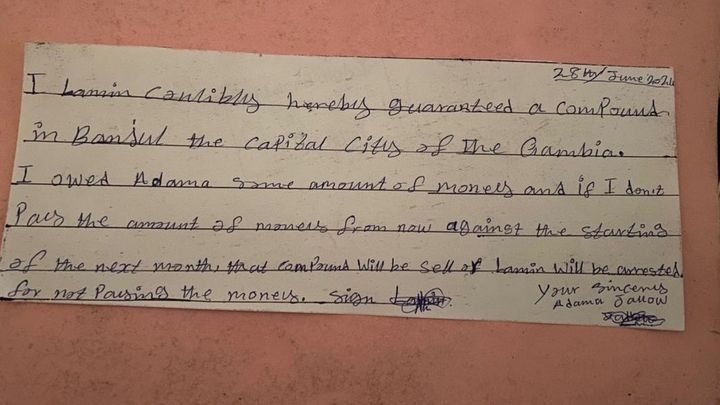 28th/June 2024
I Lamin Coulibly hereby guaranteed a Compound
in Banjul the Capital City of The Gambia.
I owed Adama some amount of money and if I don't
Pay the amount of money from now against the starting
of the next month, that Compound Will be sell or Lamin Will be arrested.
for not Paying the money. Sign
Your Sincerly
Adama Jallow